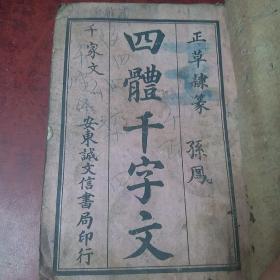 正草隸篆
孫鳳
四體千字文
千家文
安東誠文信書局印行